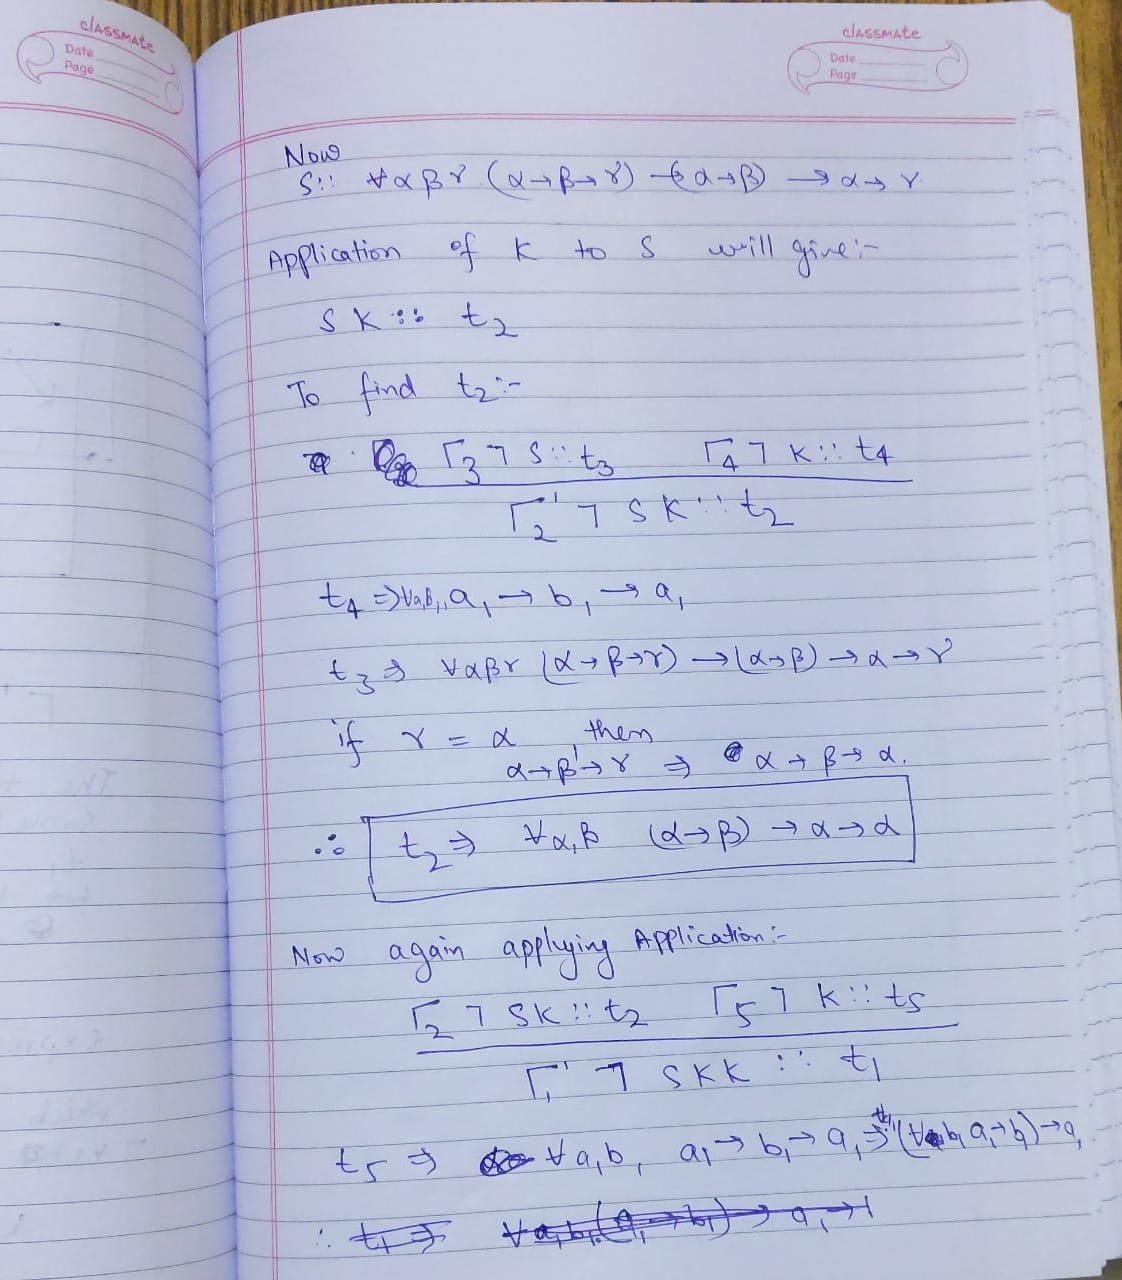 classmate
Date
Page
classmate
Date
Page
Now
S:: ∀αβγ (α→β→γ) → (α→β) → α→γ
Application of K to S will give:-
SK :: t₂
To find t₂:-
Γ₃ ⊣ S :: t₃ Γ₄ ⊣ K :: t₄
Γ₂' ⊣ SK :: t₂
t₄ ⇒ ∀a₁b₁, a₁ → b₁ → a₁
t₃ ⇒ ∀αβγ (α→β→γ) → (α→β) → α→γ
if γ = α then
α→β→γ ⇒ α→β→α.
∴ t₂ ⇒ ∀α,β (α→β) → α→α
Now again applying Application:-
Γ₂ ⊣ SK :: t₂ Γ₅ ⊣ K :: t₅
Γ₁' ⊣ SKK :: t₁
t₅ ⇒ ∀a₁b₁ a₁→b₁→a₁ ⇒ (∀b₁ a₁→b₁)→a₁
∴ t₁ ⇒ ∀a₁b₁.(a₁→b₁)→a₁→1